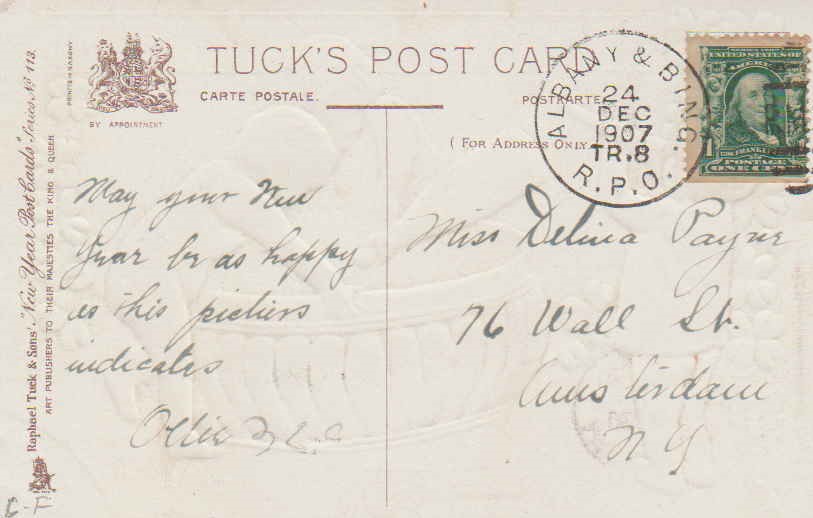 TUCK'S POST CARD
CARTE POSTALE.
POSTKARTE
BY APPOINTMENT
( FOR ADDRESS ONLY
PRINTED IN SAXONY
Raphael Tuck & Sons' "New Year Post Cards" Series No 113.
ART PUBLISHERS TO THEIR MAJESTIES THE KING & QUEEN
ALBANY & BING.
24
DEC
1907
TR.8
R.P.O.
UNITED STATES OF
AMERICA
FRANKLIN
POSTAGE
1 ONE CENT
May your New
Year be as happy
as this picture
indicates
Ollie
Miss Delina Payne
76 Wall St.
Amsterdam
N Y
C-F